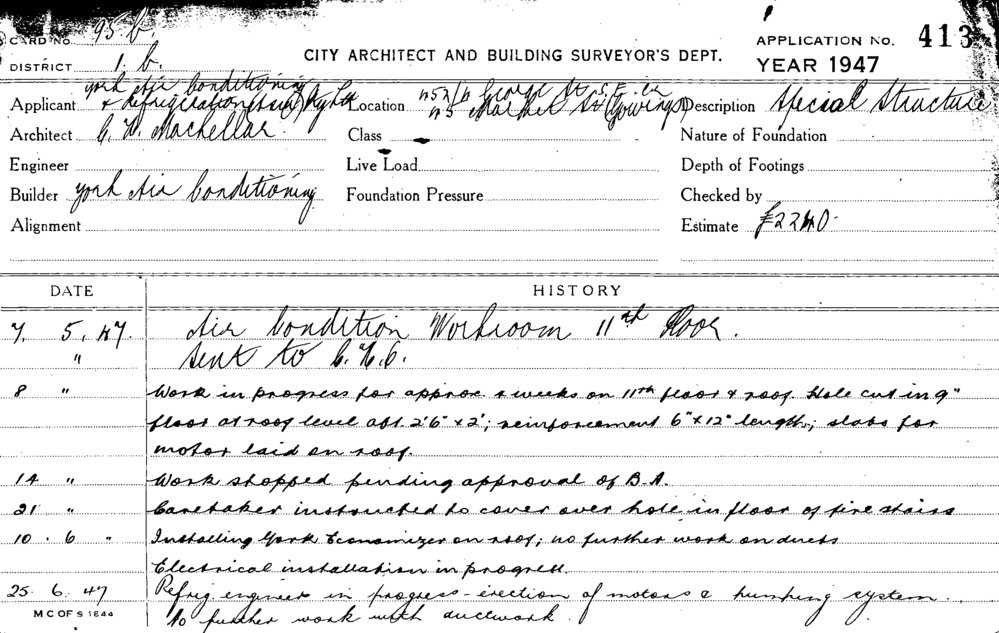 CARD NO. 95 b.
DISTRICT 1. b.
CITY ARCHITECT AND BUILDING SURVEYOR'S DEPT.
APPLICATION NO. 413
YEAR 1947
Applicant york Air Conditioning
& Refrigeration (Aust) Pty Ltd
Location 452/6 George St S.E. cr
45 Market St (Gowings)
Description Special Structure
Architect C. W. Mackellar.
Class
Nature of Foundation
Engineer
Live Load
Depth of Footings
Builder york Air Conditioning
Foundation Pressure
Checked by
Alignment
Estimate £2240.
DATE HISTORY
7. 5. 47. Air Condition Workroom 11th Floor.
" Sent to
8 " Work in progress for approx. weeks on 11th floor & roof. Hole cut in 9"
floor at roof level abt. 2'6" x 2'; reinforcement 6" x 12" length; slabs for
motor laid on roof.
14 " Work stopped pending approval of B.A.
21 " Caretaker instructed to cover over hole in floor of fire stairs
10. 6 " Installing York Economizer on roof; no further work on ducts
Electrical installation in progress.
25. 6. 47 Refrig. engineer in progress - erection of motors & pumping system.
No further work with ductwork.
M C OF S 1844